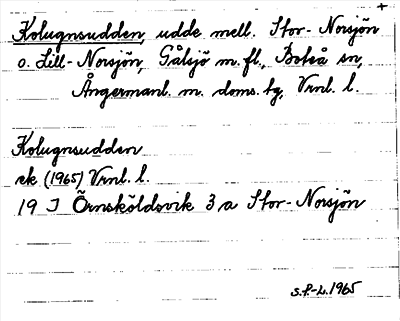 +
Kolugnsudden, udde mell. Stor-Norsjön
o. Lill-Norsjön, Gålsjö m.fl., Boteå sn,
Ångermanl. m. doms.tg, Vrnl. l.
Kolugnsudden
ek (1965) Vrnl. l.
19 J Örnsköldsvik 3 a Stor-Norsjön
S.P-L.1965